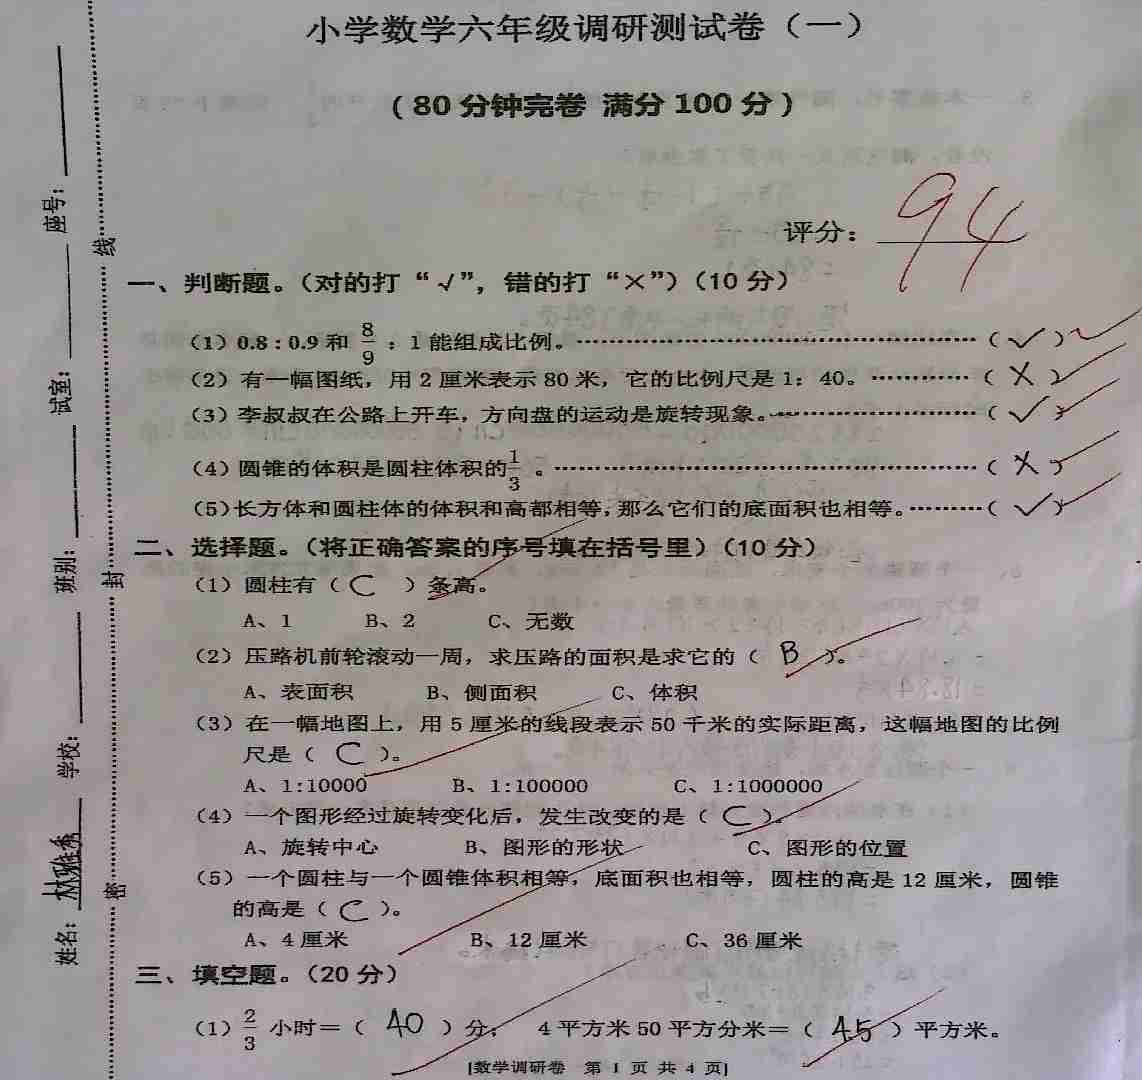 小学数学六年级调研测试卷（一）
（80分钟完卷 满分100分）
评分：94
一、判断题。（对的打“√”，错的打“×”）（10分）
（1）0.8 : 0.9和 8/9 ：1能组成比例。…………………………（√）
（2）有一幅图纸，用2厘米表示80米，它的比例尺是1：40。…………（×）
（3）李叔叔在公路上开车，方向盘的运动是旋转现象。…………………（√）
（4）圆锥的体积是圆柱体积的1/3。…………………………………（×）
（5）长方体和圆柱体的体积和高都相等，那么它们的底面积也相等。………（√）
二、选择题。（将正确答案的序号填在括号里）（10分）
（1）圆柱有（C）条高。
A、1 B、2 C、无数
（2）压路机前轮滚动一周，求压路的面积是求它的（B）。
A、表面积 B、侧面积 C、体积
（3）在一幅地图上，用5厘米的线段表示50千米的实际距离，这幅地图的比例
尺是（C）。
A、1:10000 B、1:100000 C、1:1000000
（4）一个图形经过旋转变化后，发生改变的是（C）。
A、旋转中心 B、图形的形状 C、图形的位置
（5）一个圆柱与一个圆锥体积相等，底面积也相等，圆柱的高是12厘米，圆锥
的高是（C）。
A、4厘米 B、12厘米 C、36厘米
三、填空题。（20分）
（1）2/3 小时＝（40）分， 4平方米50平方分米＝（45）平方米。
[数学调研卷 第1页共4页]
姓名：林雅秀 学校： 班别： 试室： 座号：
密 封 线